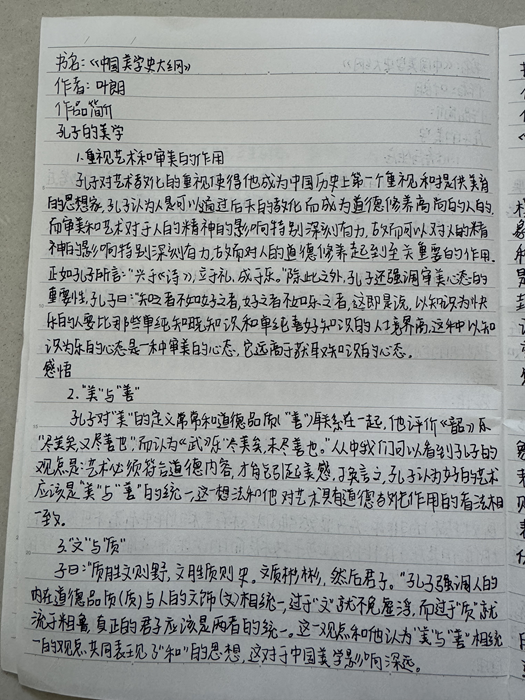 书名:《中国美学史大纲》
作者:叶朗
作品简介
孔子的美学
1.重视艺术和审美的作用
孔子对艺术教化的重视使得他成为中国历史上第一个重视和提供美育
的思想家,孔子认为人是可以通过后天的教化而成为道德修养高尚的人的,
而审美和艺术对于人的精神的影响特别深刻有力,故而可以对人的精
神的影响特别深刻有力,故而对人的道德修养起到至关重要的作用.
正如孔子所言:“兴于《诗》,立于礼,成于乐。”除此之外,孔子还强调审美心态的
重要性,孔子曰:“知之者不如好之者,好之者不如乐之者,这即是说,以知识为快
乐的人要比那些单纯知晓知识和单纯喜好知识的人境界高,这种以知
识为乐的心态是一种审美的心态,它远高于获取知识的心态。
感悟
2.“美”与“善”
孔子对“美”的定义常常和道德品质(“善”)联系在一起,他评价《韶》乐
“尽美矣,又尽善也”,而认为《武》乐“尽美矣,未尽善也。”从中我们可以看到孔子的
观点是:艺术必须符合道德内容,才能引起美感,换言之,孔子认为好的艺术
应该是“美”与“善”的统一,这一想法和他对艺术具有道德教化作用的看法相
一致。
3.“文”与“质”
子曰:“质胜文则野,文胜质则史。文质彬彬,然后君子。”孔子强调人的
内在道德品质(质)与人的文饰(文)相统一,过于“文”就不免虚浮,而过于“质”就
流于粗鲁,真正的君子应该是两者的统一。这一观点和他认为“美”与“善”相统
一的观点共同表现了“和”的思想,这对于中国美学影响深远。